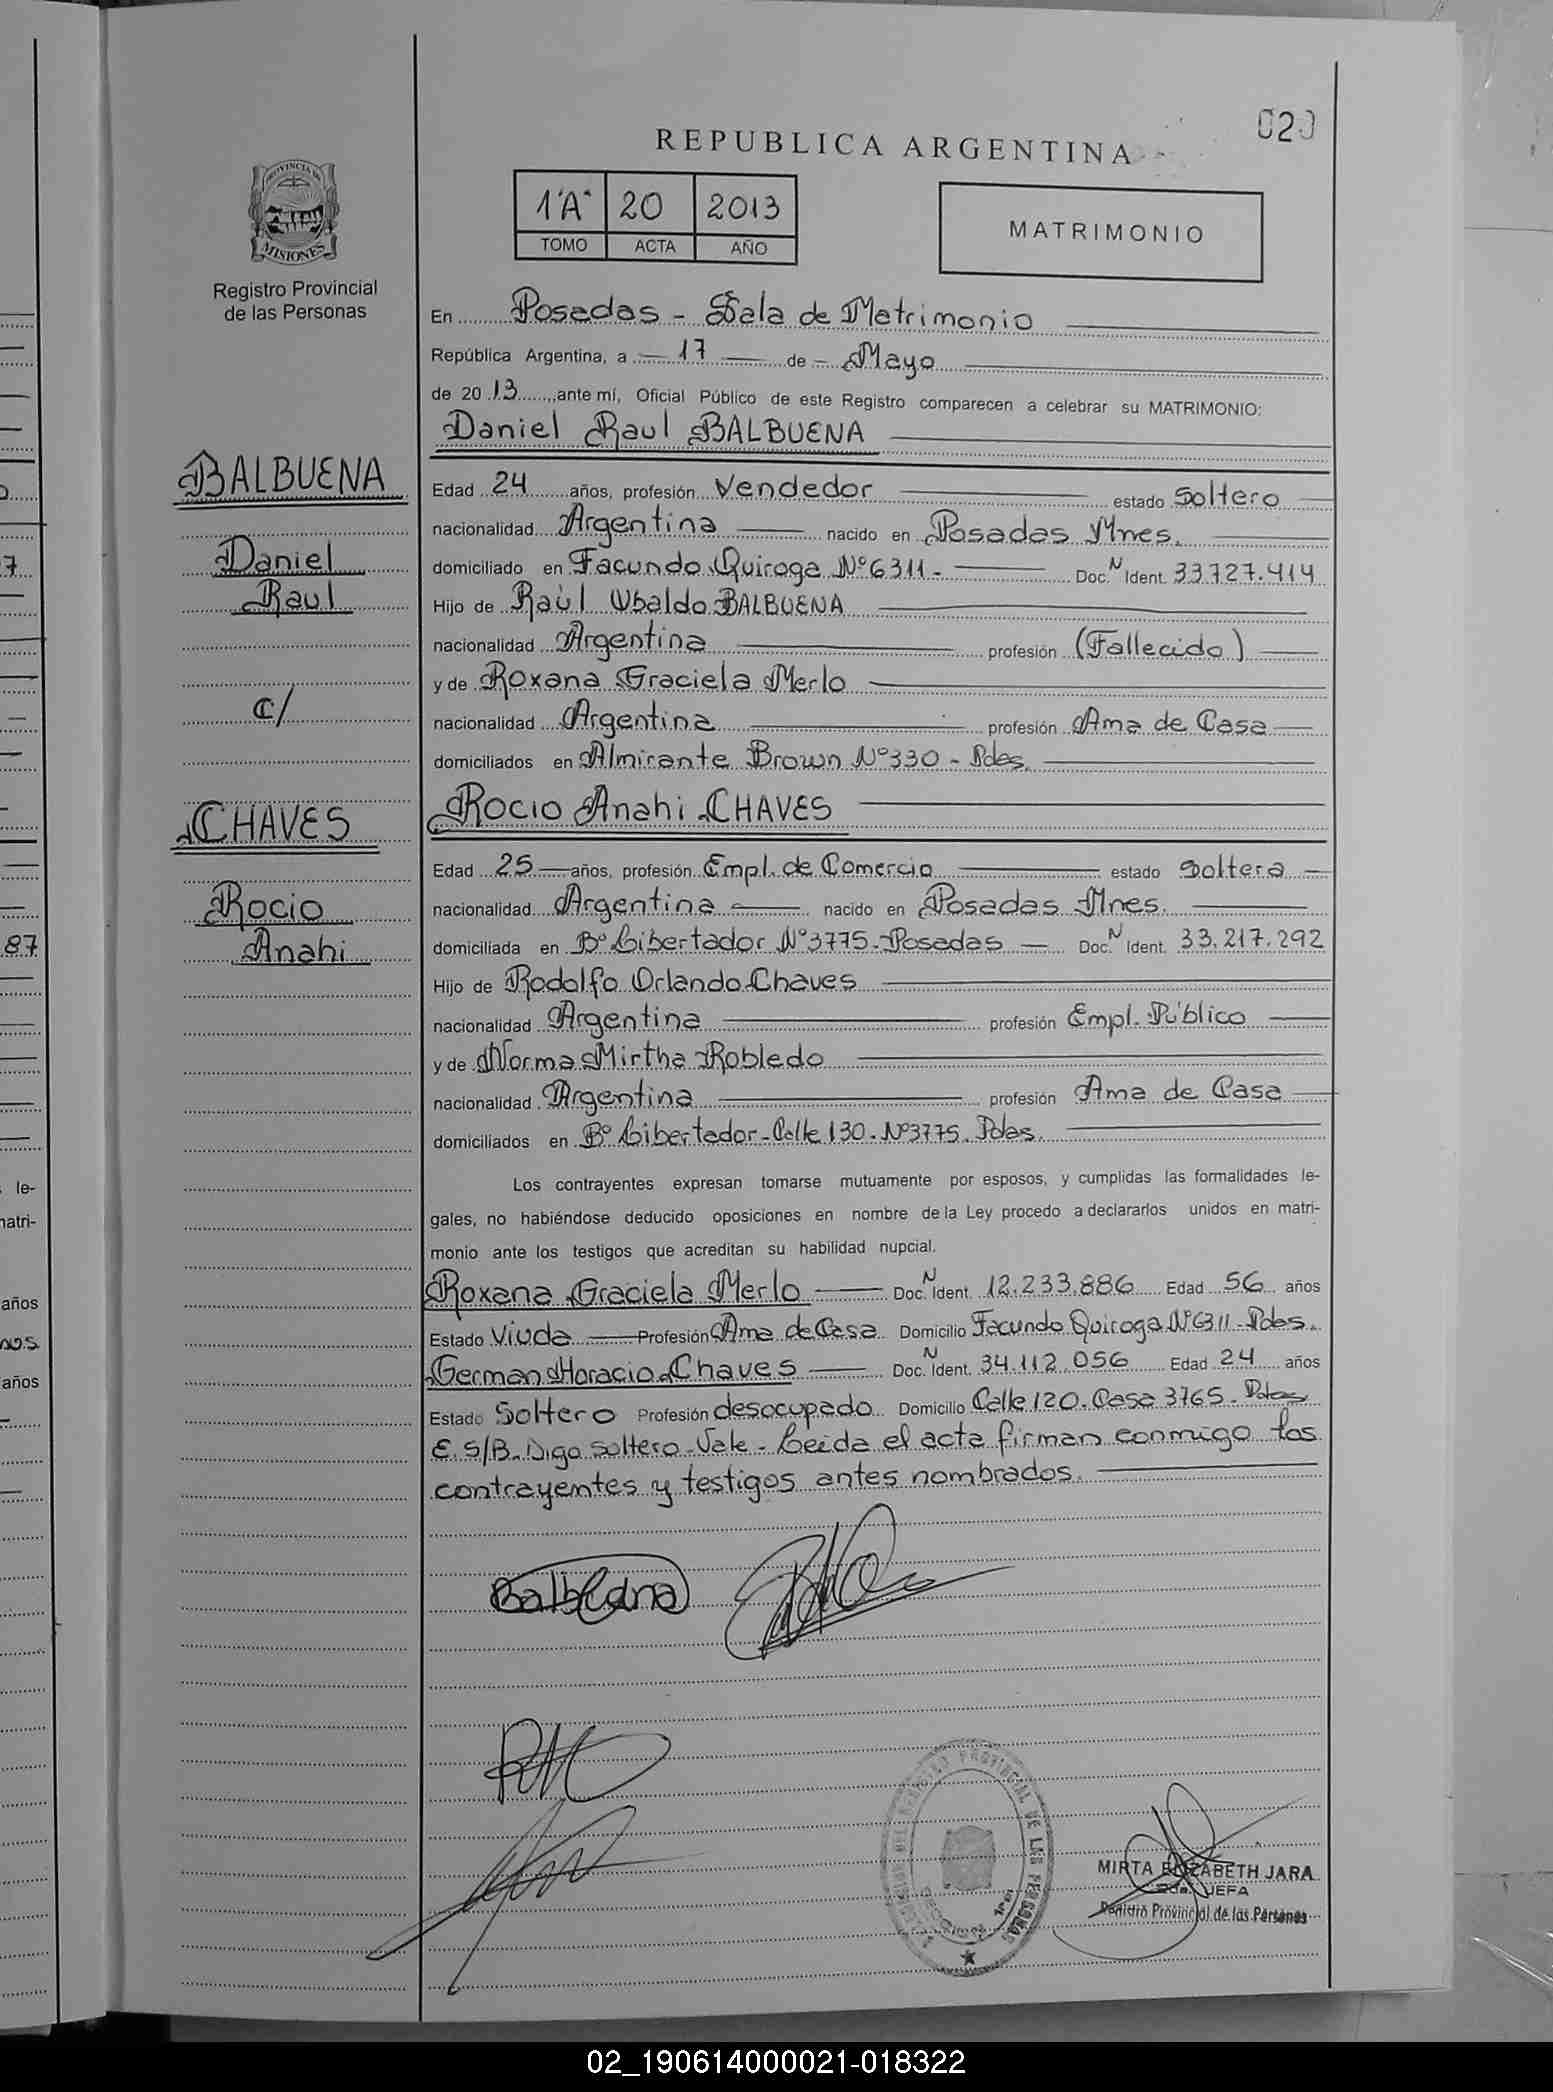 020
REPUBLICA ARGENTINA
1"A" 20 2013
TOMO ACTA AÑO
MATRIMONIO
PROVINCIA DE
MISIONES
Registro Provincial
de las Personas
BALBUENA
Daniel
Raul
C/
CHAVES
Rocio
Anahi
En Posadas - Sala de Matrimonio
República Argentina, a 17 de Mayo
de 2013, ante mí, Oficial Público de este Registro comparecen a celebrar su MATRIMONIO:
Daniel Raul BALBUENA
Edad 24 años, profesión Vendedor estado Soltero
nacionalidad Argentina nacido en Posadas Mnes.
domiciliado en Facundo Quiroga Nº 6311 - Doc. N Ident. 33.727.414
Hijo de Raúl Ubaldo BALBUENA
nacionalidad Argentina profesión (Fallecido)
y de Roxana Graciela Merlo
nacionalidad Argentina profesión Ama de Casa
domiciliados en Almirante Brown Nº 330 - Pdas.
Rocio Anahi CHAVES
Edad 25 años, profesión Empl. de Comercio estado Soltera
nacionalidad Argentina nacido en Posadas Mnes.
domiciliada en Bº Libertador Nº 3775 - Posadas Doc. N Ident. 33.217.292
Hijo de Rodolfo Orlando Chaves
nacionalidad Argentina profesión Empl. Público
y de Norma Mirtha Robledo
nacionalidad Argentina profesión Ama de Casa
domiciliados en Bº Libertador - Calle 130 - Nº 3775. Pdas.
Los contrayentes expresan tomarse mutuamente por esposos, y cumplidas las formalidades le-
gales, no habiéndose deducido oposiciones en nombre de la Ley procedo a declararlos unidos en matri-
monio ante los testigos que acreditan su habilidad nupcial.
Roxana Graciela Merlo Doc. N Ident. 12.233.886 Edad 56 años
Estado Viuda Profesión Ama de Casa Domicilio Facundo Quiroga Nº 6311 - Pdas.
German Horacio Chaves Doc. N Ident. 34.112.056 Edad 24 años
Estado Soltero Profesión desocupado Domicilio Calle 120. Casa 3765 - Pdas
E. S/B. Digo soltero - Vale - Leida el acta firman conmigo los
contrayentes y testigos antes nombrados.
Balbuena
REGISTRO PROVINCIAL DE LAS PERSONAS
MIRTA ELIZABETH JARA
JEFA
Registro Provincial de las Personas
7
87
le-
matri-
años
años
02_190614000021-018322